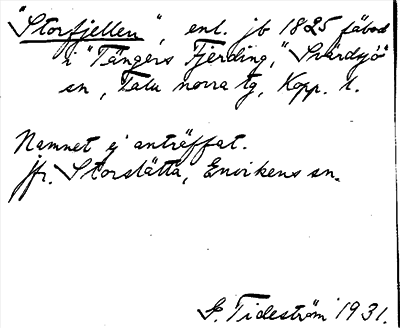 "Storfjellen", enl. jb 1825 fäbod
i "Tängers Fjerding," Svärdsjö
sn, Falu norra tg, Kopp. l.
Namnet ej anträffat.
jfr. Storslätta, Envikens sn.
G. Tideström 1931.